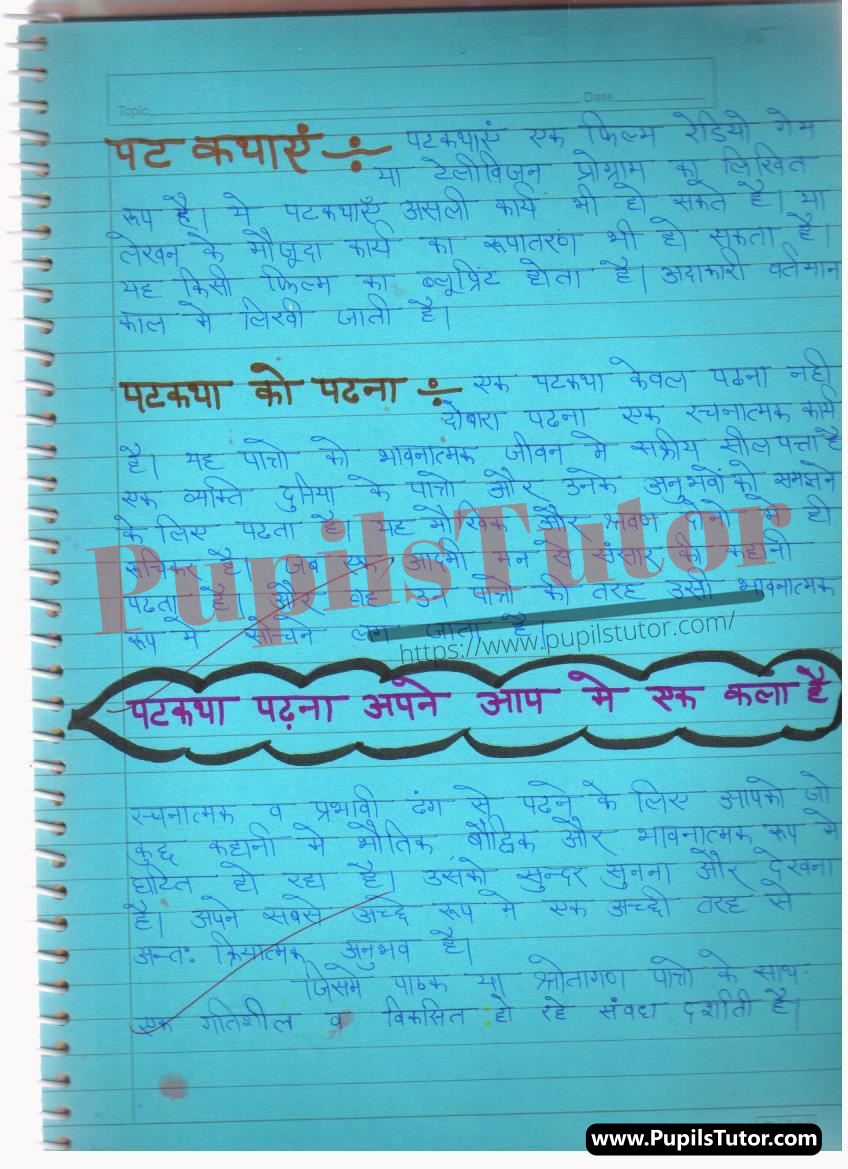 15
Topic
Date
पट कथाएं ÷ पटकथाएं एक फिल्म रेडियो गेम
या टेलीविजन प्रोग्राम का लिखित
रूप है। ये पटकथाएँ असली कार्य भी हो सकते है। या
लेखन के मौजूदा कार्य का रूपातरण भी हो सकता है।
यह किसी फिल्म का ब्लूप्रिंट होता है। अदाकारी वर्तमान
काल मे लिखी जाती है।
पटकथा को पढना ÷ एक पटकथा केवल पढना नही
दोबारा पढना एक रचनात्मक कार्य
है। यह पात्तो को भावनात्मक जीवन मे सक्रीय सीलपत्ता है
एक व्यक्ति दुनिया के पात्तो और उनके अनुभवों को समझने
के लिए पढता है। यह मौखिक और श्रवण दोनो मे ही
रूचिकर है। जब एक आदमी मन से संसार की कहानी
पढता है। और वह उन पात्तो की तरह उसी भावनात्मक
रूप मे सोचने लग जाता है।
PupilsTutor
https://www.pupilstutor.com/
पटकथा पढ़ना अपने आप मे एक कला है
रचनात्मक व प्रभावी ढंग से पढने के लिए आपको जो
कुछ कहानी मे भौतिक बौद्विक और भावनात्मक रूप मे
घटित हो रहा है। उसको सुन्दर सुनना और देखना
है। अपने सबसे अच्छे रूप मे एक अच्छी तरह से
अन्तः क्रियात्मक अनुभव है।
जिसमे पाठक या श्रोतागण पात्तो के साथ
एक गतिशील व विकसित हो रहे संवध दर्शाती है।
www.PupilsTutor.com